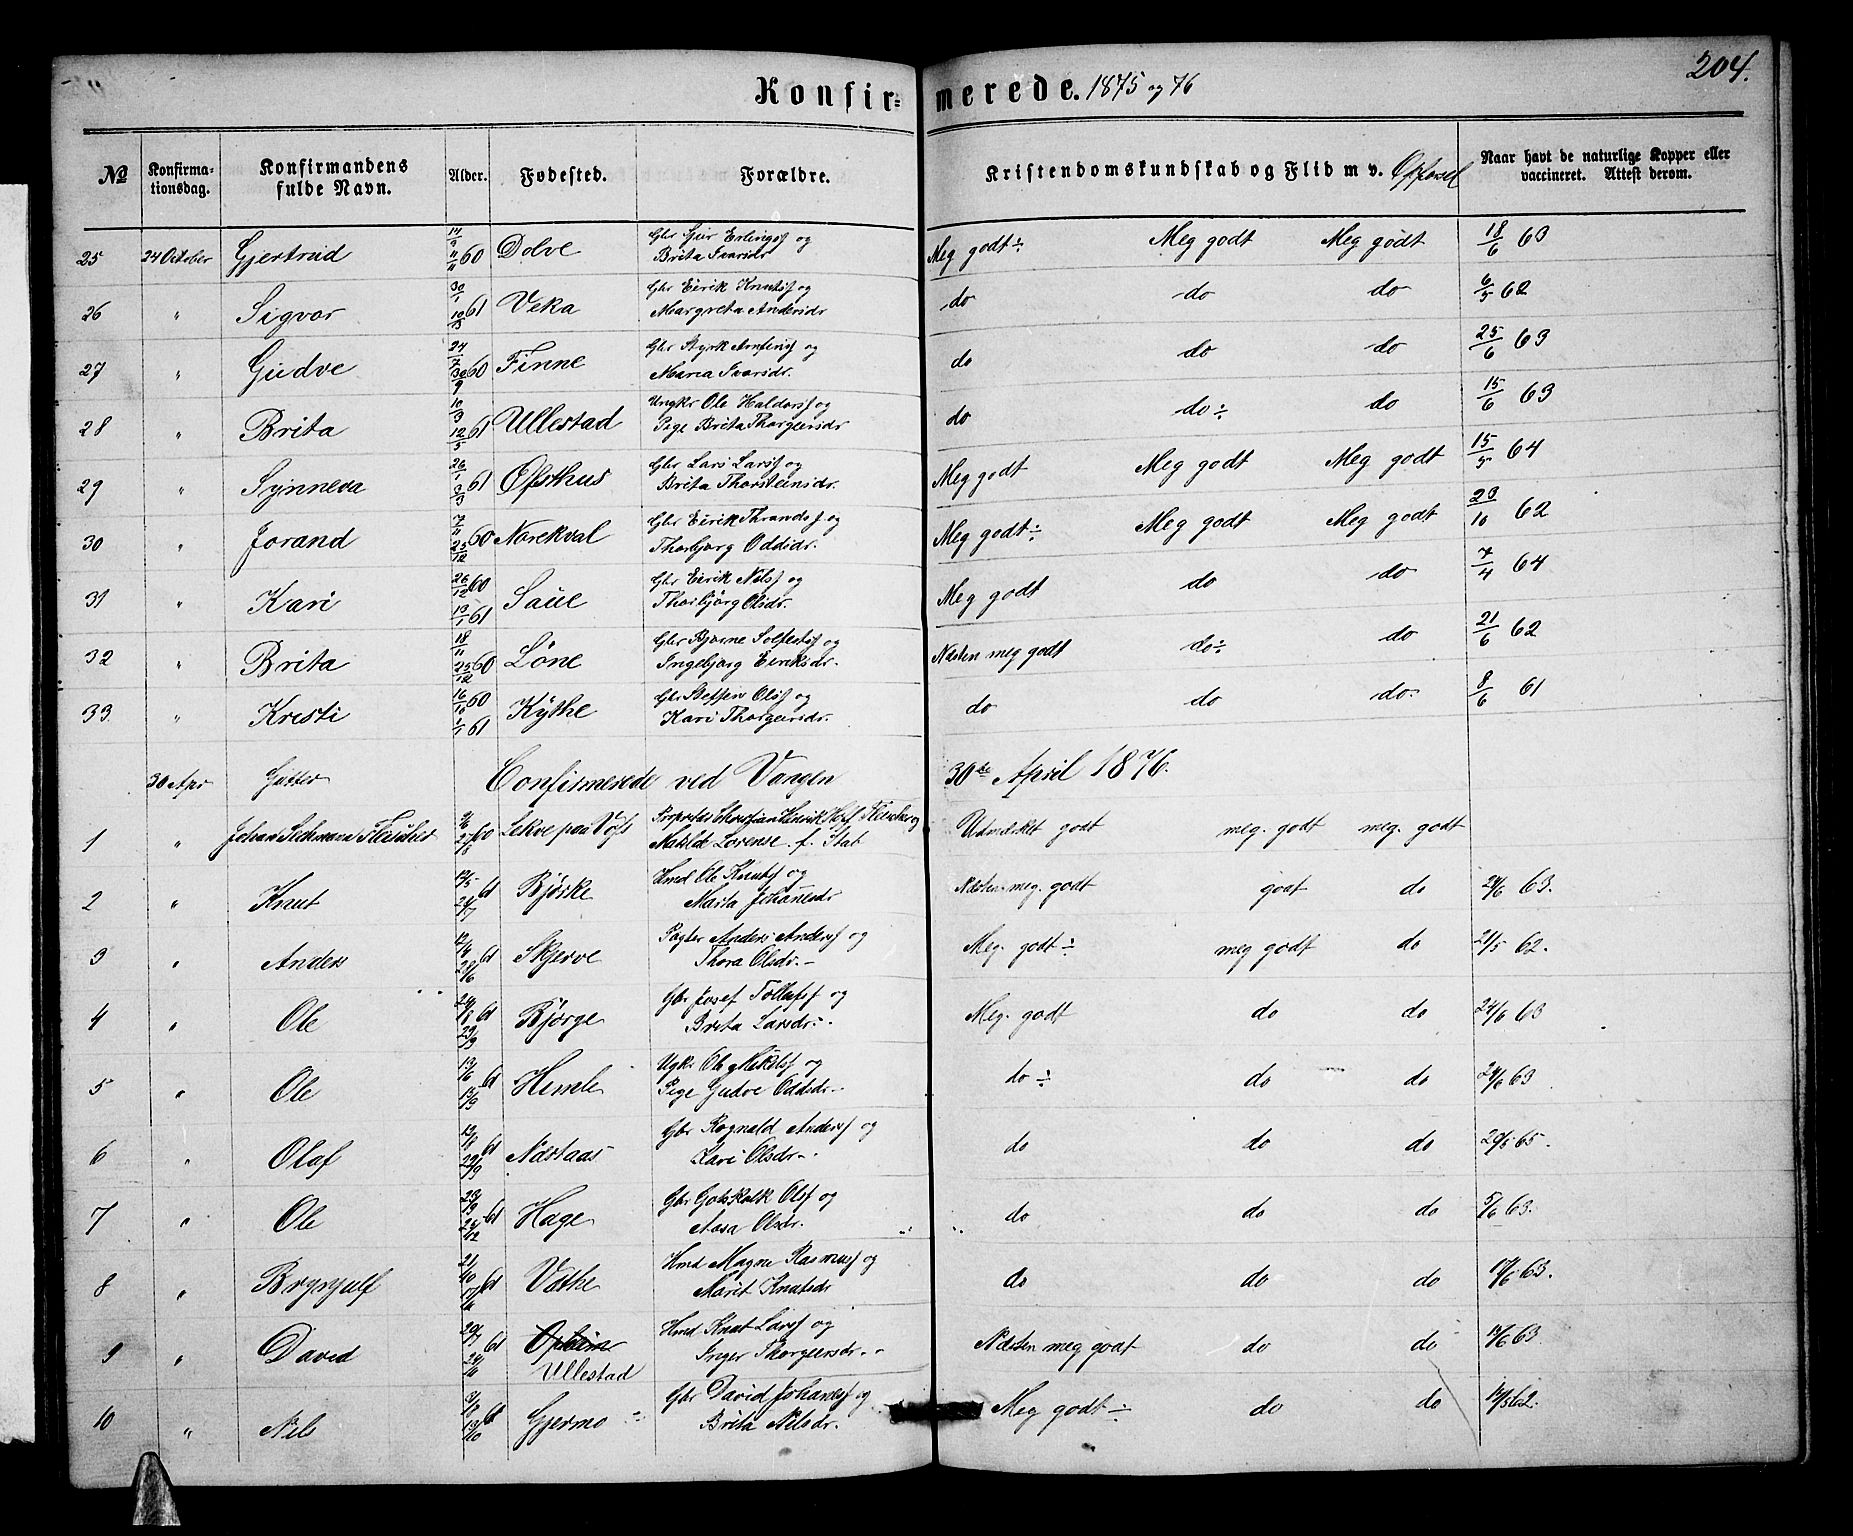 Konfirmerede. 1875 og 76
204.
No Konfirmationsdag. Konfirmandens fulde Navn. Alder. Fødested. Forældre. Kristendomskundskab og Flid m v. Opførsel Naar havt de naturlige Kopper eller vaccineret. Attest derom.
25 24 October Gjertrud 60 Dolve Gbr Geir Erlingsf og Meg godt ÷ Meg godt Meg godt 18/6 63
Brita Ivarsdr
26 " Sigvor 30/1 61 Veka Gbr Eirik Knutsf og do do do 6/5 62
Margreta Andersdr
27 " Gudve 24/7 30/9 60 Finne Gbr Styrk og do do do 25/6 63
Maria Ivarsdr.
28 " Brita 10/3 12/5 61 Ullestad Ungkr Ole Haldorsf og do do ÷ do 15/6 63
Pige Brita Thorgeirsdr
29 " Synneva 26/1 3/3 61 Opsthus Gbr Lars Larsf og Meg godt Meg godt Meg godt 15/5 64
Brita Thorsteinsdr.
30 " Jorand 7/11 25/12 60 Norekval Gbr Eirik Throndsf og Meg godt ÷ Meg godt Meg godt 23/10 62
Thorbjørg Oddsdr.
31 " Kari 26/12 60 13/1 61 Saue Gbr Eirik Nilsf og Meg godt do do 7/4 64
Thorbjørg Olsdr.
32 " Brita 18/11 25/12 60 Løne Gbr Bjørne Solfestsf og Næsten meg godt do ÷ do 21/6 62
Ingebjørg Eiriksdr.
33. " Kristi 16/10 60 1/1 61 Kythe Gbr Steffen Olsf og do do do 8/6 61
Kari Thorgeirsdr.
30 Apr Gutter Confirmerede ved Vangen 30te April 1876.
1 " Johan 60 Lekve paa Voss Christian Henrik og Udmærket godt meg. godt meg. godt
Matilde Lorense f. Stab
2 " Knut 12/5 61 Bjørke Hmd Ole Knutsf og Næsten meg. godt godt do 24/6 63.
Marta Johannesdr
3 " Anders 12/6 61 Skjerve Pagter Anders Andersf og Meg. godt ÷ meg godt do 21/5 62.
Thora Olsdr.
4 " Ole 61 Bjørge Gbr Josef Tollefsf og Meg. godt do do 24/6 63
Brita Larsdr.
5 " Ole 13/6 61 Himle Ugkr. Ole Mikelsf og do ÷ do do 24/6 63
Pige Gudve Oddsdr.
6 " Olaf 61 Næstaas Gbr Rognald Andersf og do do do 29/5 65.
Kari Olsdr.
7 " Ole 61 Hage Gbr Gotskalk Olsf og do do do 5/6 63.
Aasa Olsdr.
8 " Brynjulf 21/10 61 Væthe Hmd Magne Rasmusf og do do do 63.
Marit Knutsdr
9 " David 61 Hmd Knut Larsf og Næsten meg godt do do 63.
Ullestad Inger Thorgeirsdr.
10 " Nils 61 Gjermo Gbr David Johannesf og Meg godt ÷ do do 62.
Brita Nilsdr.